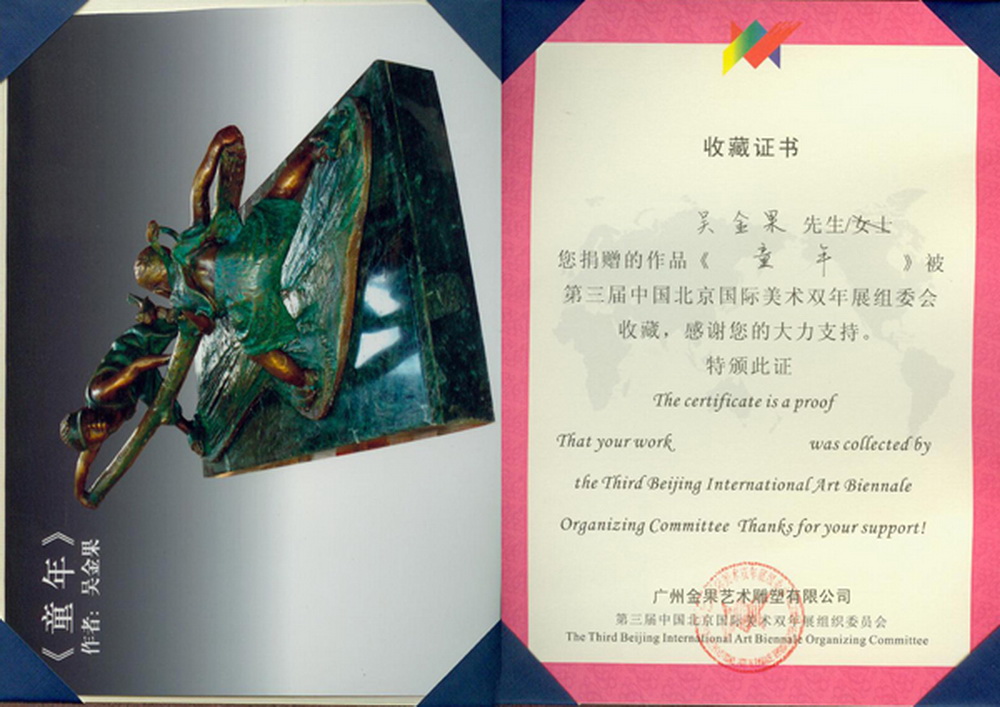 《童年》
作者：吴金果
收藏证书
吴金果 先生/女士
您捐赠的作品《 童年 》被
第三届中国北京国际美术双年展组委会
收藏，感谢您的大力支持。
特颁此证
The certificate is a proof
That your work was collected by
the Third Beijing International Art Biennale
Organizing Committee Thanks for your support!
广州金果艺术雕塑有限公司
第三届中国北京国际美术双年展组织委员会
The Third Beijing International Art Biennale Organizing Committee